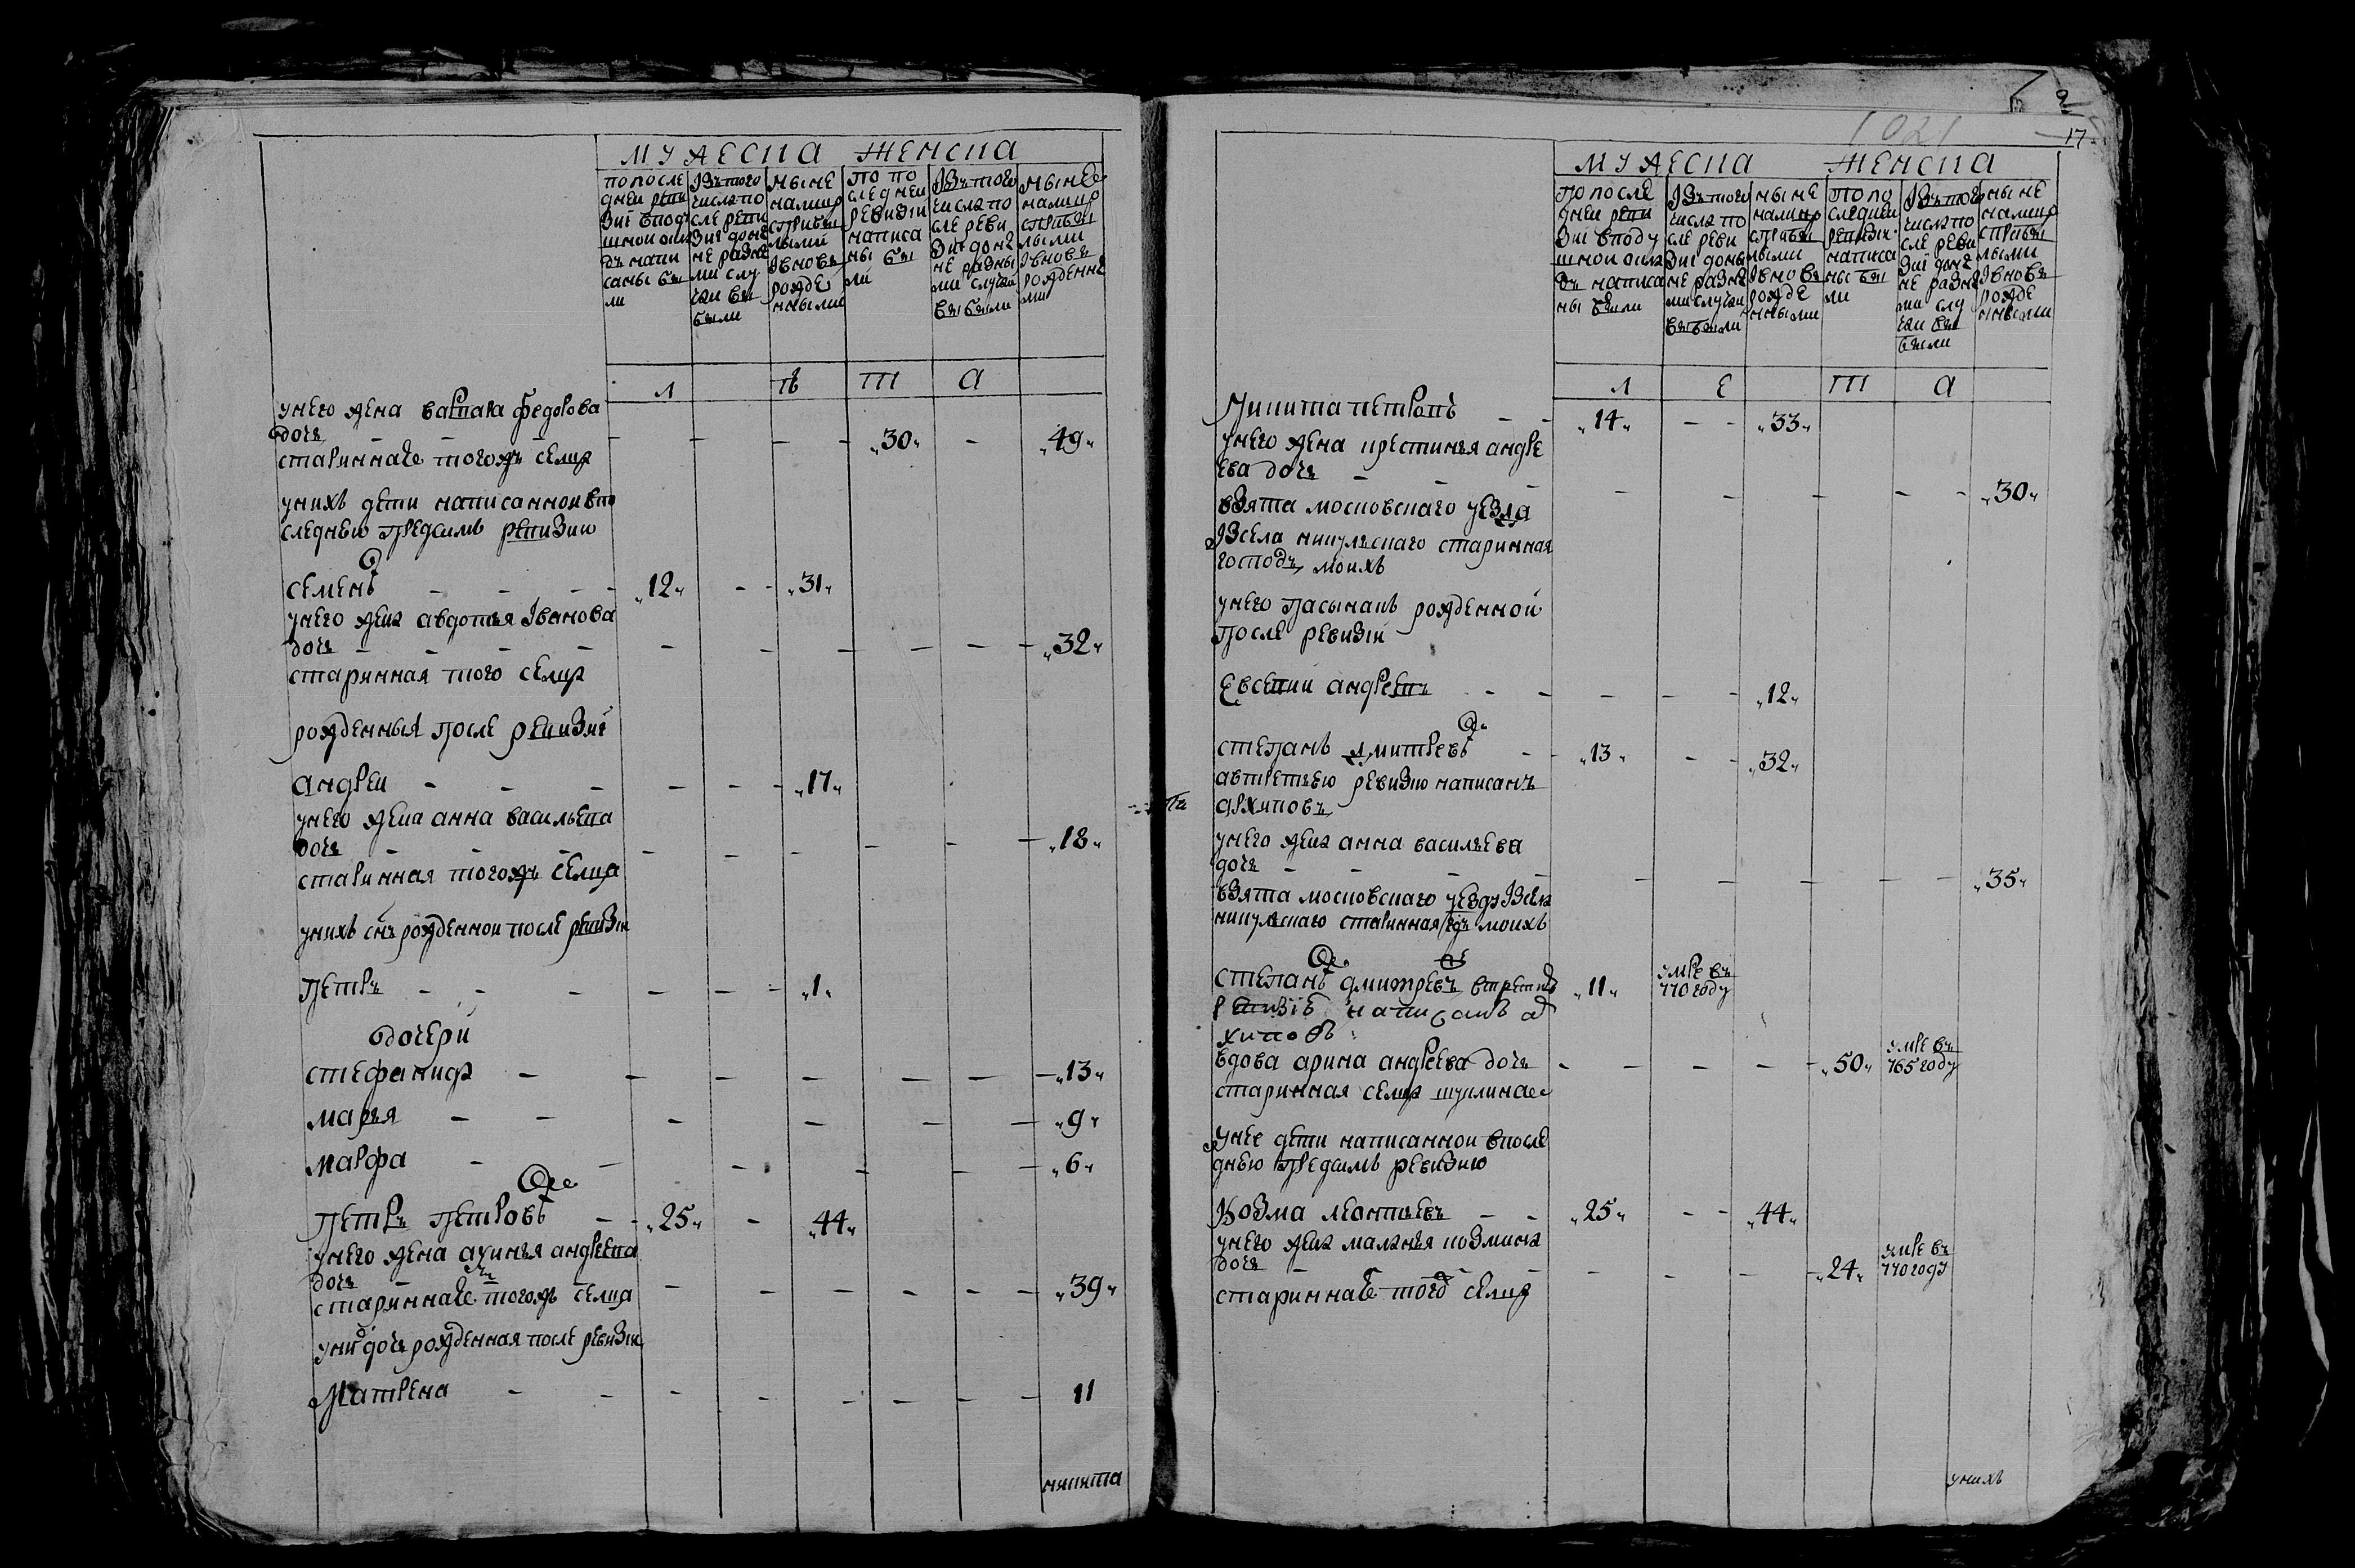 МУЖЕСКА ЖЕНСКА
по после
дней реви
зиї вподу
шной окла
дъ напи
саны бы
ли
Iзъ того
числа по
сле реви
зиї доны
не разны
ми слу
чаи вы
были
ныне
налицо
сприбы
лыми
Iвновъ
рожде
нными
по по
следнеи
ревизїи
написа
ны бы
ли
Iзъ того
числа по
сле реви
зиї доны
не разны
ми случаи
выбыли
ныне
налицо
сприбы
лыми
Iвновъ
рожденны
ми
Л В Т А
унего жена варвара федорова
дочь - 30 - 49
стариннаѧ тогожъ селца
унихъ дети написанной впо
следнею предсимъ ревизию
семенъ - 12 - 31
унего жена авдотья Iванова
дочь - 32
старинная того селца
рожденныя после ревизиї
андреи - 17
унего жена анна васильева
дочь - 18
старинная тогожъ селца
унихъ снъ рожденной после ревизїи
петръ - 1
дочери
стефанида - 13
марья - 9
марфа - 6
петръ петровъ - 25 - 44
унего жена акинья андреева
дочь - 39
стариннаѧ тогожъ селца
уних дочь рожденная после ревизїи
Матрена - 11
никита
2
1021
17
МУЖЕСКА ЖЕНСКА
по после
дней реви
зиї вподу
шной окла
дъ написа
ны были
Iзъ того
числа по
сле реви
зиї доны
не разны
ми случаи
выбыли
ныне
налицо
сприбы
лыми
Iвновъ
рожде
нными
по по
следнеи
ревизїи
написа
ны бы
ли
Iзъ того
числа по
сле реви
зиї доны
не разны
ми слу
чаи вы
были
ныне
налицо
сприбы
лыми
Iвновъ
рожде
нными
Л Е Т А
Никита петровъ - 14 - 33
унего жена крестинья андре
ева дочь - 30
взята московскаго уезда
Iзсела никульскаго старинная
господъ моихъ
унего пасынакъ рожденной
после ревизїи
Евсевий андреевъ - 12
степанъ дмитревъ - 13 - 32
автретьею ревизию написанъ
архиповъ
унего жена анна васильева
дочь - 35
взята московскаго уезду Iзсела
никульскаго старинная гдъ моихъ
степанъ дмитревъ втретьей - 11 умре въ 770 году
ревизїе написанъ ар
хиповъ
вдова арина андреева дочь - 50 умре въ 765 году
старинная селца
унее дети написанной впосле
днею предсимъ ревизию
Козма леонтьевъ - 25 - 44
унего жена маланья козмина
дочь - 24 умре въ 770 году
стариннаѧ того селца
унихъ